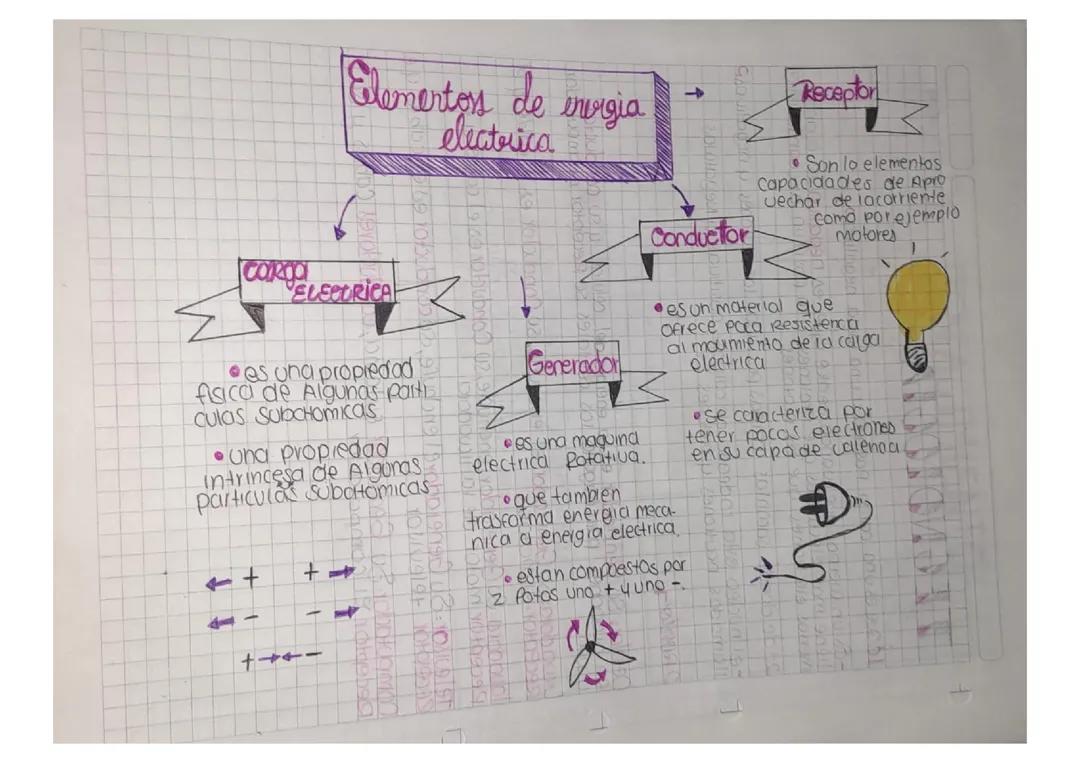 Elementos de energia
electrica
Receptor
• Son lo elementos
capacidades de Apro
vechar de lacorriente
como por ejemplo
motores
Conductor
• es un material que
ofrece poca Resistencia
al movimiento de la carga
electrica
• se caracteriza por
tener pocos electrones
en su capa de valencia
CARGA
ELECTRICA
• es una propiedad
fisica de Algunas parti
culas subatomicas
• una propiedad
intrincesa de Algunas
particulas subatomicas
+ +
- -
+ -
Generador
• es una maquina
electrica Rotativa.
• que tambien
trasforma energia meca-
nica a energia electrica.
• estan compoestos por
2 Polos uno + y uno -.